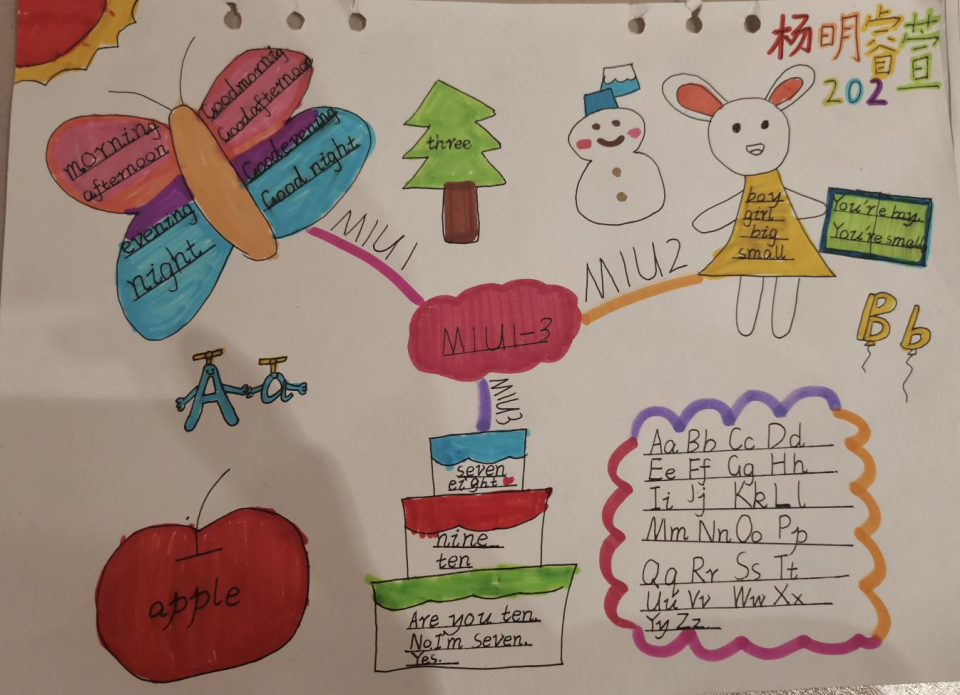 杨明睿萱
202
Goodmornig
Goodafternoon
morning
afternoon
Goodevening
Good night
evening
night
three
boy
girl
big
small
You're boy.
You're small
MIU1
MIU2
MIU1-3
MIU3
B b
A a
seven
eight
nine
ten
Are you ten.
No.I'm seven.
Yes.
apple
Aa Bb Cc Dd
Ee Ff Gg Hh
Ii Jj Kk Ll
Mm Nn Oo Pp
Qq Rr Ss Tt
Uu Vv Ww Xx
Yy Zz